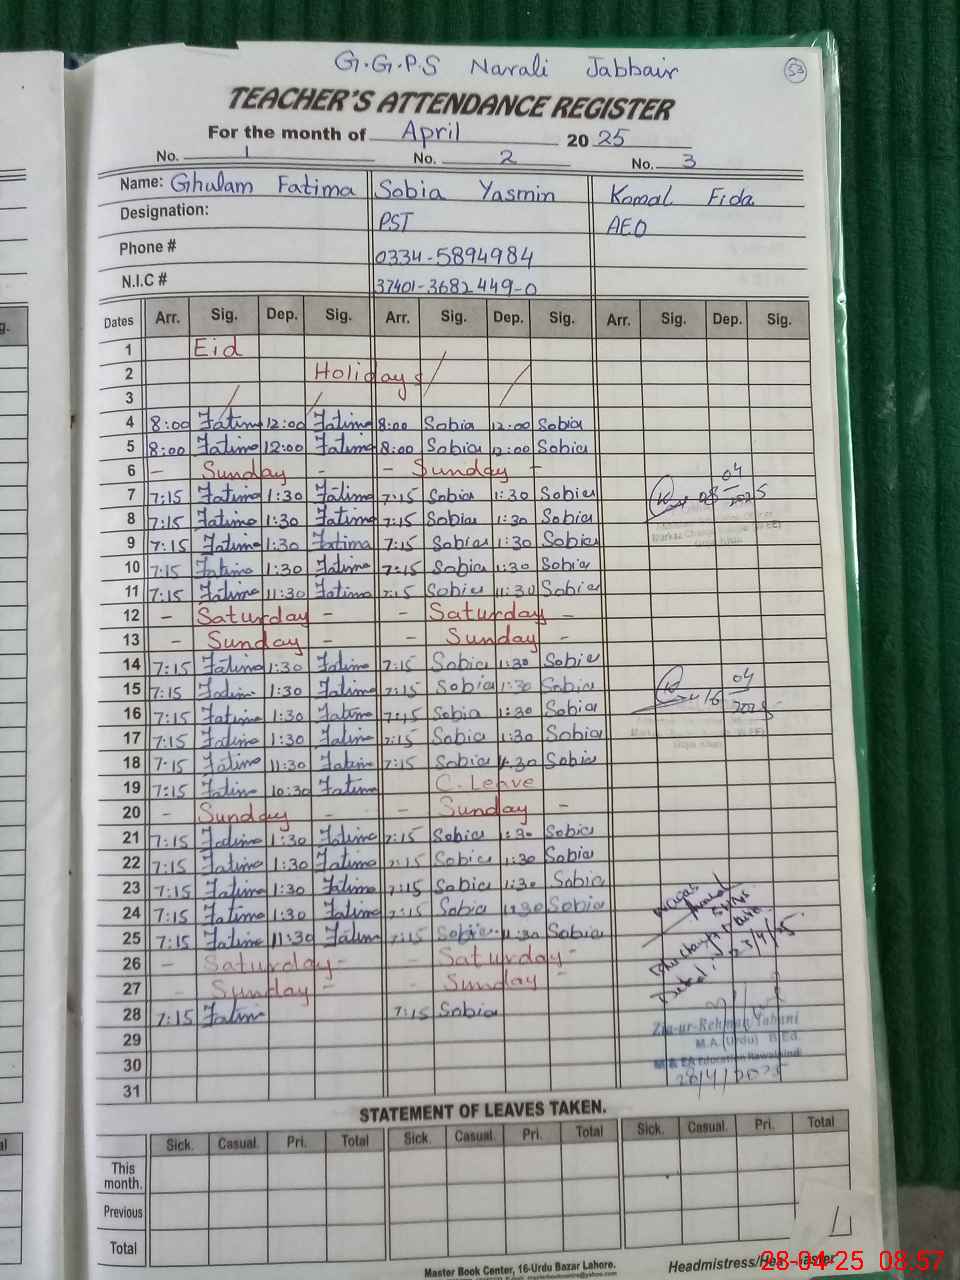 G.G.P.S Narali Jabbair 53
TEACHER'S ATTENDANCE REGISTER
For the month of April 2025
No. 1 No. 2 No. 3
Name: Ghulam Fatima Sobia Yasmin Komal Fida
Designation: PST AEO
Phone # 0334-5894984
N.I.C # 37401-3682449-0
Dates Arr. Sig. Dep. Sig. Arr. Sig. Dep. Sig. Arr. Sig. Dep. Sig.
1 Eid
2 Holidays
3
4 8:00 Fatima 12:00 Fatima 8:00 Sobia 12:00 Sobia
5 8:00 Fatima 12:00 Fatima 8:00 Sobia 12:00 Sobia
6 - Sunday - - Sunday -
7 7:15 Fatima 1:30 Fatima 7:15 Sobia 1:30 Sobia 08 04 2025
8 7:15 Fatima 1:30 Fatima 7:15 Sobia 1:30 Sobia
9 7:15 Fatima 1:30 Fatima 7:15 Sobia 1:30 Sobia
10 7:15 Fatima 1:30 Fatima 7:15 Sobia 1:30 Sobia
11 7:15 Fatima 11:30 Fatima 7:15 Sobia 11:30 Sobia
12 - Saturday - - Saturday -
13 - Sunday - - Sunday -
14 7:15 Fatima 1:30 Fatima 7:15 Sobia 1:30 Sobia
15 7:15 Fatima 1:30 Fatima 7:15 Sobia 1:30 Sobia 16 04 2025
16 7:15 Fatima 1:30 Fatima 7:15 Sobia 1:30 Sobia
17 7:15 Fatima 1:30 Fatima 7:15 Sobia 1:30 Sobia
18 7:15 Fatima 11:30 Fatima 7:15 Sobia 11:30 Sobia
19 7:15 Fatima 10:30 Fatima C. Leave
20 - Sunday - - Sunday -
21 7:15 Fatima 1:30 Fatima 7:15 Sobia 1:30 Sobia
22 7:15 Fatima 1:30 Fatima 7:15 Sobia 1:30 Sobia
23 7:15 Fatima 1:30 Fatima 7:15 Sobia 1:30 Sobia
24 7:15 Fatima 1:30 Fatima 7:15 Sobia 1:30 Sobia
25 7:15 Fatima 11:30 Fatima 7:15 Sobia 11:30 Sobia
26 - Saturday - - Saturday -
27 - Sunday - - Sunday -
28 7:15 Fatima 7:15 Sobia
Zia-ur-Rehman
29 M.A.(Urdu) B.Ed.
30 M & EA Education Rawalpindi
28/4/2025
31
STATEMENT OF LEAVES TAKEN.
Sick. Casual. Pri. Total Sick. Casual. Pri. Total Sick. Casual. Pri. Total
This month.
Previous
Total
Master Book Center, 16-Urdu Bazar Lahore.
Headmistress/Headmaster
28-04-25 08:57